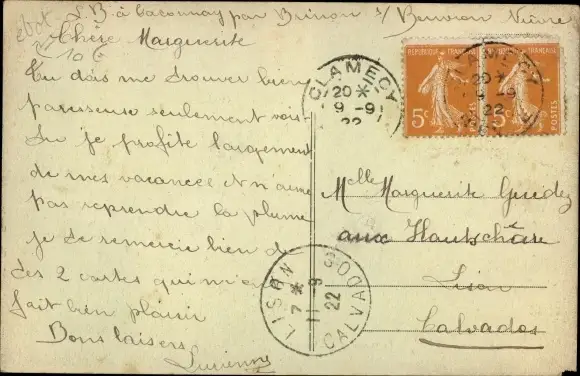 L B à Taconnay par Brinon s/ Beuvron Nièvre
Chère Marguerite
10 c
Tu dois me trouver bien
paresseuse seulement vois-
tu je profite largement
de mes vacances et n'aime
pas reprendre la plume
je te remercie bien de
tes 2 cartes qui m'ont
fait bien plaisir
Bons baisers
Lucienne
CLAMECY
20 *
9 - 9
22
REPUBLIQUE FRANÇAISE
5c
POSTES
REPUBLIQUE FRANÇAISE
5c
POSTES
CLAMECY
20 *
9 - 9
22
Melle Marguerite
aux
Lison
Calvados
LISON
7 *
11 - 9
22
CALVADOS